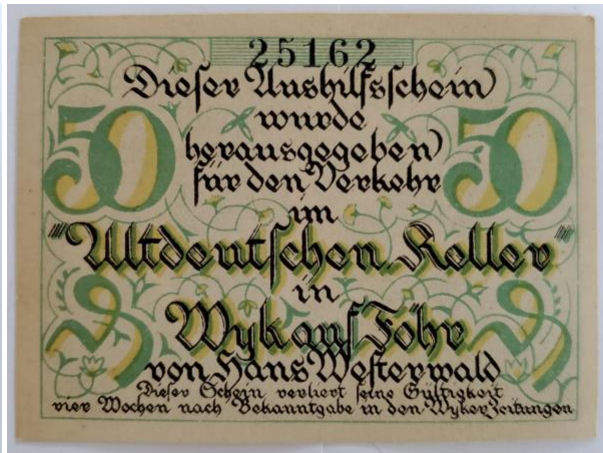 25162
Dieser Aushilfsschein
wurde
50 herausgegeben 50
für den Verkehr
im
"Altdeutschen Keller"
in
Wyk auf Föhr
von Hans Westerwald
Dieser Schein verliert seine Gültigkeit
vier Wochen nach Bekanntgabe in den Wyker Zeitungen